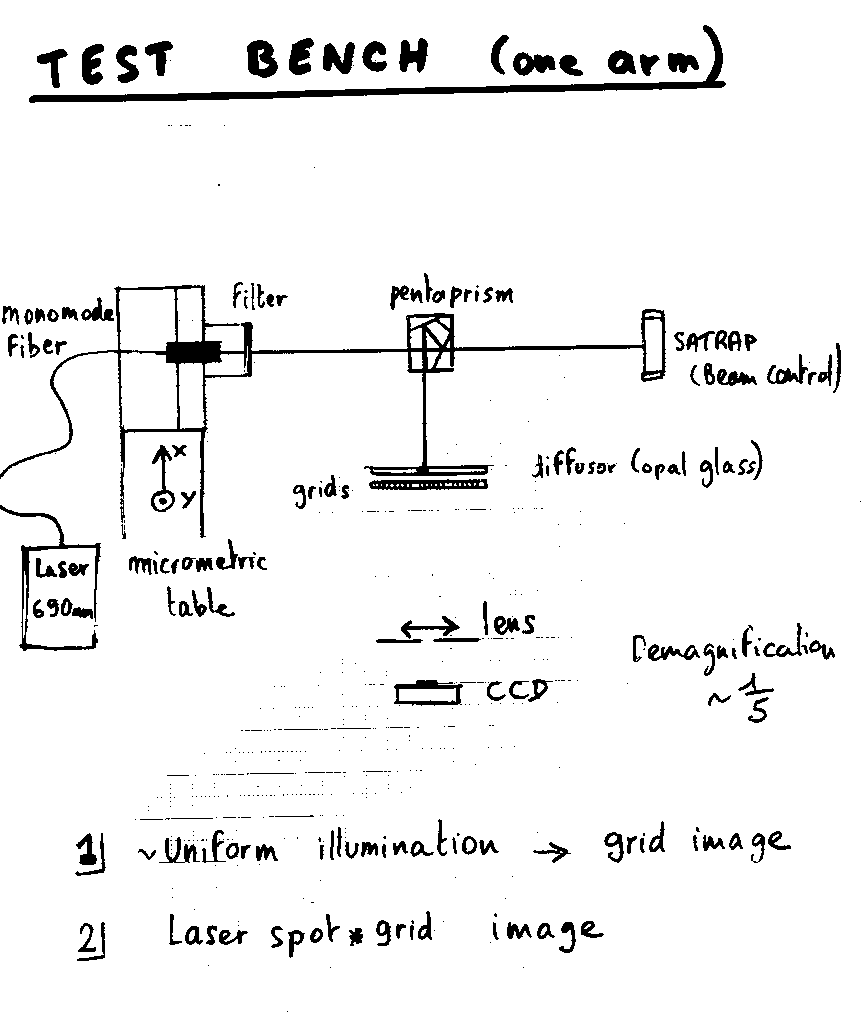 TEST BENCH (one arm)
monomode
fiber
filter
pentaprism
SATRAP
(Beam control)
X
Y
grids
diffusor (opal glass)
Laser
690nm
micrometric
table
lens
CCD
Demagnification
~ 1/5
1| ~ Uniform illumination → grid image
2| Laser spot * grid image